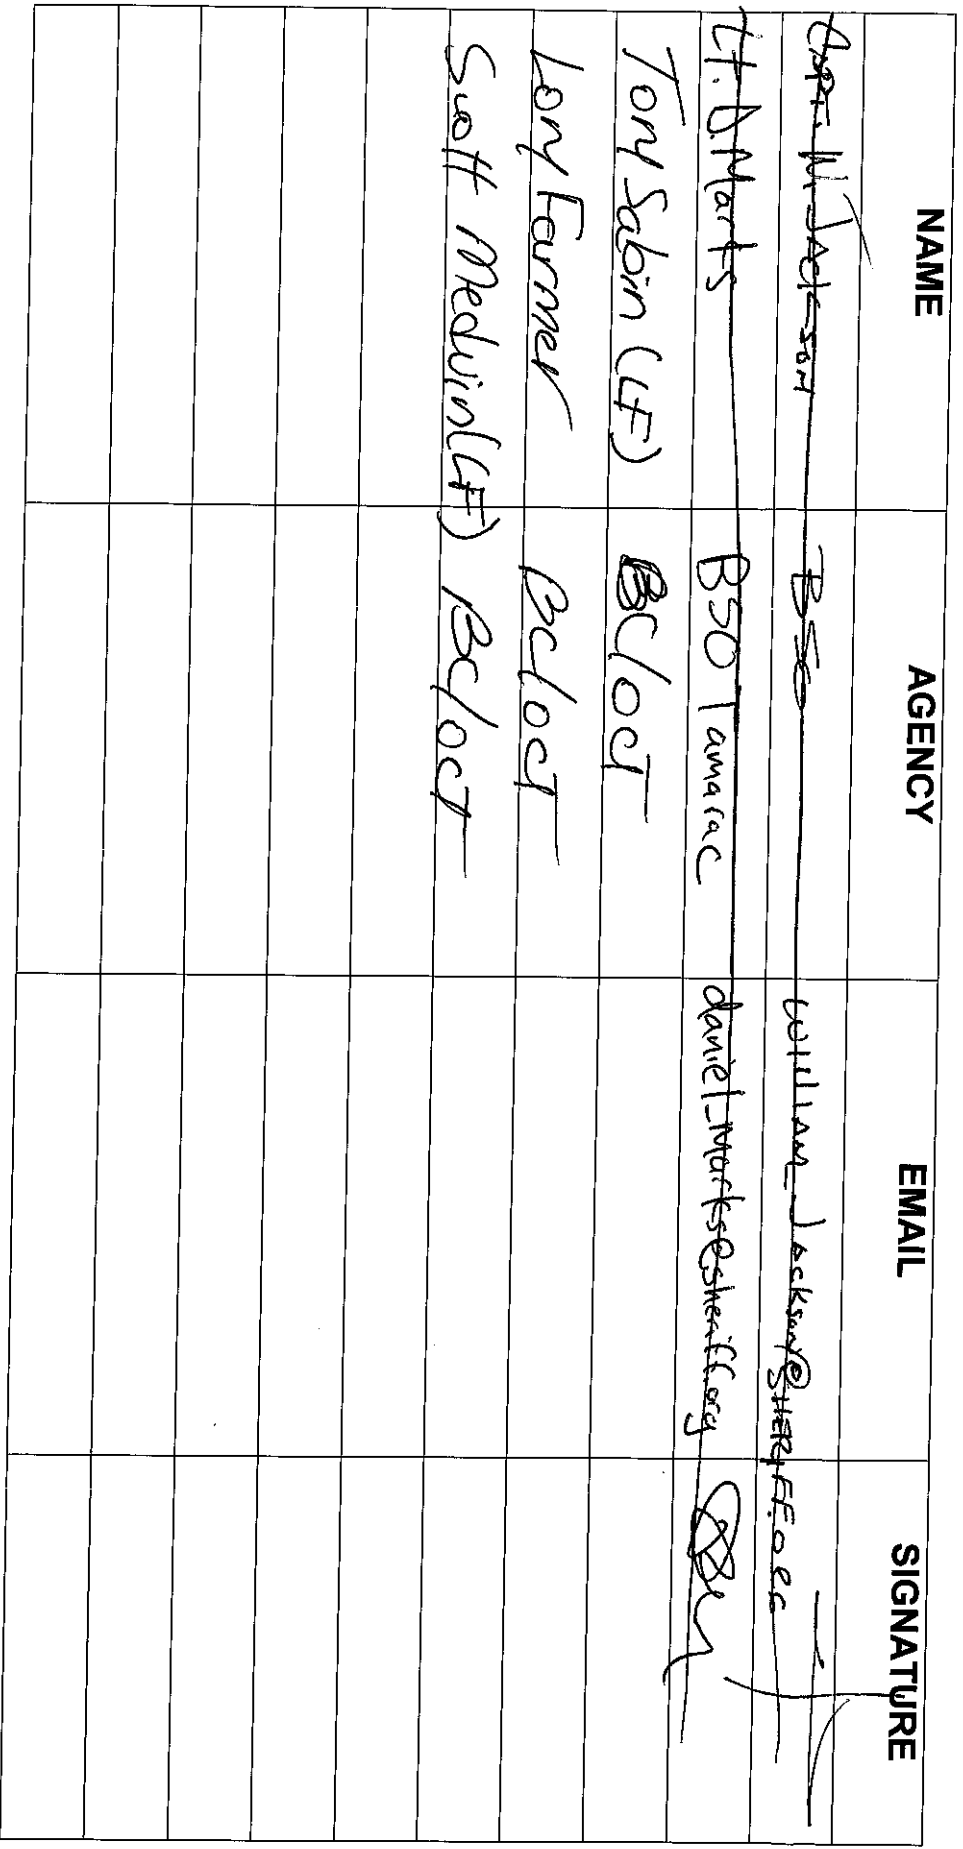 NAME AGENCY EMAIL SIGNATURE
Capt. W. Jackson BSO William_Jackson@SHERIFF.ORG
Lt. D. Marks BSO Tamarac daniel_Marks@sheriff.org
Tony Sabin (LF) BC/OCJ
Lory Farmer BC/OCJ
Scott Medvin (LF) BC/OCJ